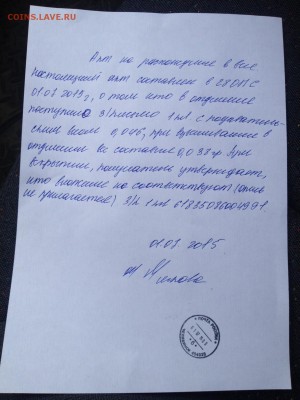 COINS.LAVE.RU
Акт на расхождение в весе
Настоящий акт составлен в 28 ОПС
01.07.2015г, о том что в отделение
поступило з/письмо 1кл с
весом 0,046, при взвешивание в
отделение вес составил 0,038 гр. При
вскрытии, получатель утверждает,
что вложение не соответствует (опись
не прилагается) з/п 1кл
01.07.2015.